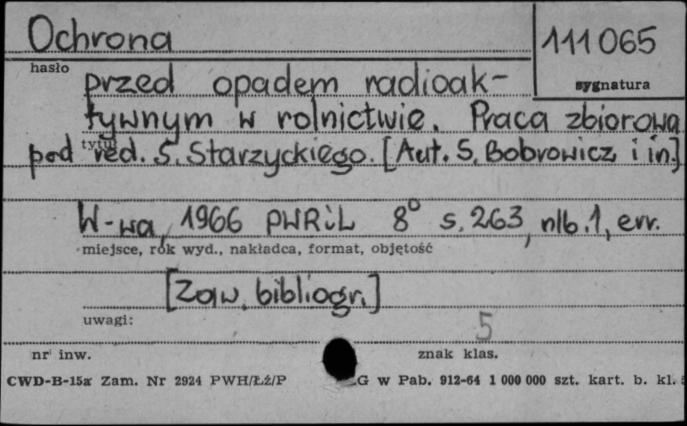 Ochrona
111065
hasło
sygnatura
przed opadem radioak-
tywnym w rolnictwie. Praca zbiorowa
tytuł
pod red. S. Starzyckiego. [Aut. S. Bobrowicz i in.]
W-wa, 1966 PWRiL 8° s. 263, nlb. 1, err.
miejsce, rok wyd., nakładca, format, objętość
[Zaw. bibliogr.]
uwagi:
5
nr inw.
znak klas.
CWD-B-15a Zam. Nr 2924 PWH/Łż/P G w Pab. 912-64 1 000 000 szt. kart. b. kl.